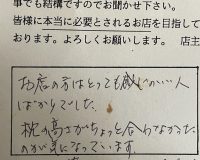 事でも結構ですのでお聞かせ下さい。
皆様に本当に必要とされるお店を目指して
おります。よろしくお願いします。 店主
お店の方はとっても感じのいい人
ばかりでした。
枕の高さがちょっと合わなかった
のが気になっています。